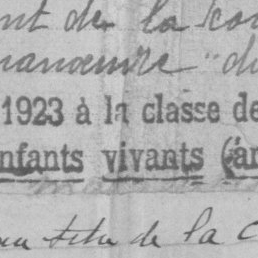 nt de la cou
manœuvre "du
1923 à la classe de
nfants vivants (ar
au titre de la C